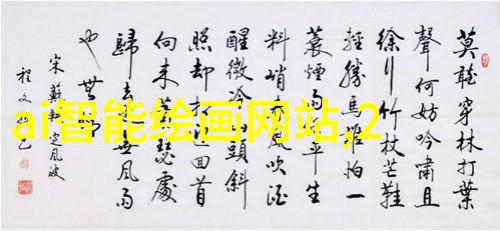 莫聽穿林打葉
聲何妨吟嘯且
徐行竹杖芒鞋
輕勝馬誰怕一
蓑煙雨平生
料峭吹酒
醒微冷頭斜
照却迴首
向来瑟處
歸風雨
也無
宋蘇軾定風波
程文乙
ai智能绘画网站,2